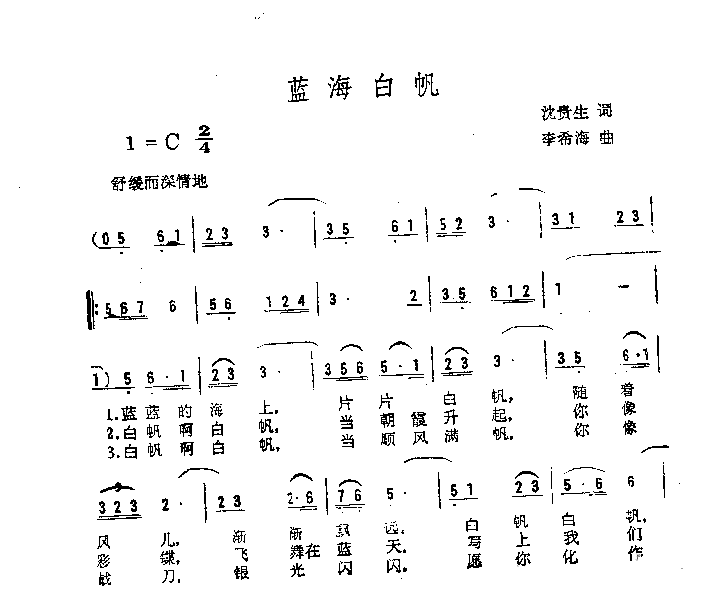 蓝海白帆
沈贵生 词
1=C 2/4
李希海 曲
舒缓而深情地
(05 61 | 23 3· | 35 61 | 52 3· | 31 23 |
‖: 567 6 | 56 124 | 3· 2 | 35 612 | 1 — |
1) 5 6·1 | 23 3· | 356 5·1 | 23 3· | 35 6·1 |
1.蓝蓝的海上,片片白帆,随着
2.白帆啊白帆,当朝霞升起,你像
3.白帆啊白帆,当顺风满帆,你像
323 2· | 23 2·6 | 76 5· | 51 23 | 5·6 6 |
风儿,渐渐飘远。白帆白帆,
彩蝶,飞舞在蓝天。写上我们
战刀,银光闪闪。愿你化作